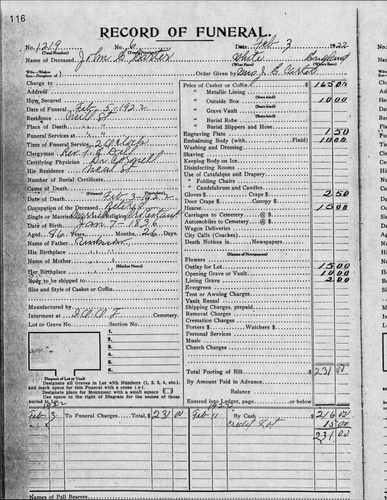 116
RECORD OF FUNERAL.
No. 1219 No. 6 Date, Feb 3 1922
(Total Number) (Yearly Number)
Name of Deceased, John C. White England
(What Race) (Where Born)
Order Given by Mrs. J. C. Carter
Charge to
Address
How Secured
Date of Funeral, Feb 5-1922
Residence
Place of Death,
Funeral Services at
Time of Funeral Services, 2 O'clock
Clergyman Rev.
Certifying Physician Dr.
His Residence
Number of Burial Certificate,
Cause of Death
(Primary) (Secondary)
Date of Death, Feb 3-1922
Occupation of the Deceased Retired
Single or Married Married Religion Protestant
Date of Birth Jan 7-1836
Aged 86 Years, Months, 26 Days.
Name of Father Unknown
His Birthplace
Name of Mother
(Maiden Name)
Her Birthplace
Body to be shipped to
Size and Style of Casket or Coffin,
Manufactured by
Interment at I.O.O.F. Cemetery.
Lot or Grave No. Section No.
1.
2.
3.
4.
5.
6.
Diagram of Lot or Vault
Designate all Graves in Lot with Numbers (1, 2, 3, 4, etc.), and mark space for this Funeral with a cross (+).
Designate place for Monument with a small square
Use space to the right of Diagram for the names of those buried in Lot.
Price of Casket or Coffin, $ 165 00
" Metallic Lining
(State kind)
" Outside Box 10 00
(State kind)
" Grave Vault
(State kind)
" Burial Robe
(State kind)
" Burial Slippers and Hose
Engraving Plate 1 50
Embalming Body (with Fluid) 10 00
Washing and Dressing
Shaving
Keeping Body on Ice
Disinfecting Rooms
Use of Catafalque and Drapery
" Folding Chairs
" Candelabrum and Candles
Gloves $ Crape $ 2 50
Door Crape Canopy $
Hearse 15 00
Carriages to Cemetery @ $
Automobiles to Cemetery @ $
Wagon Deliveries
City Calls (Coaches)
Death Notices in Newspapers
(Names of Newspapers)
Flowers
Outlay for Lot 15 00
Opening Grave or Vault 10 00
Lining Grave 2 00
Evergreen
Tent or Awning Charges
Vault Rental
Shipping Charges, prepaid
Removal Charges
Cremation Charges
Porters $ Watchers $
Personal Services
Music
Church Charges
Total Footing of Bill $ 231 00
By Amount Paid in Advance
Balance
Entered into Ledger, page or below.
1922
Feb 3 To Funeral Charges Total, $ 231 00
1922
Feb 11 By Cash $ 216 00
credit Lot 15 00
231 00
Names of Pall Bearers